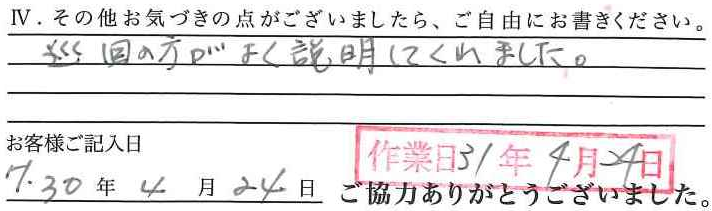 Ⅳ．その他お気づきの点がございましたら、ご自由にお書きください。
巡回の方がよく説明してくれました。
お客様ご記入日
作業日31年4月24日
H.30年4月24日
ご協力ありがとうございました。